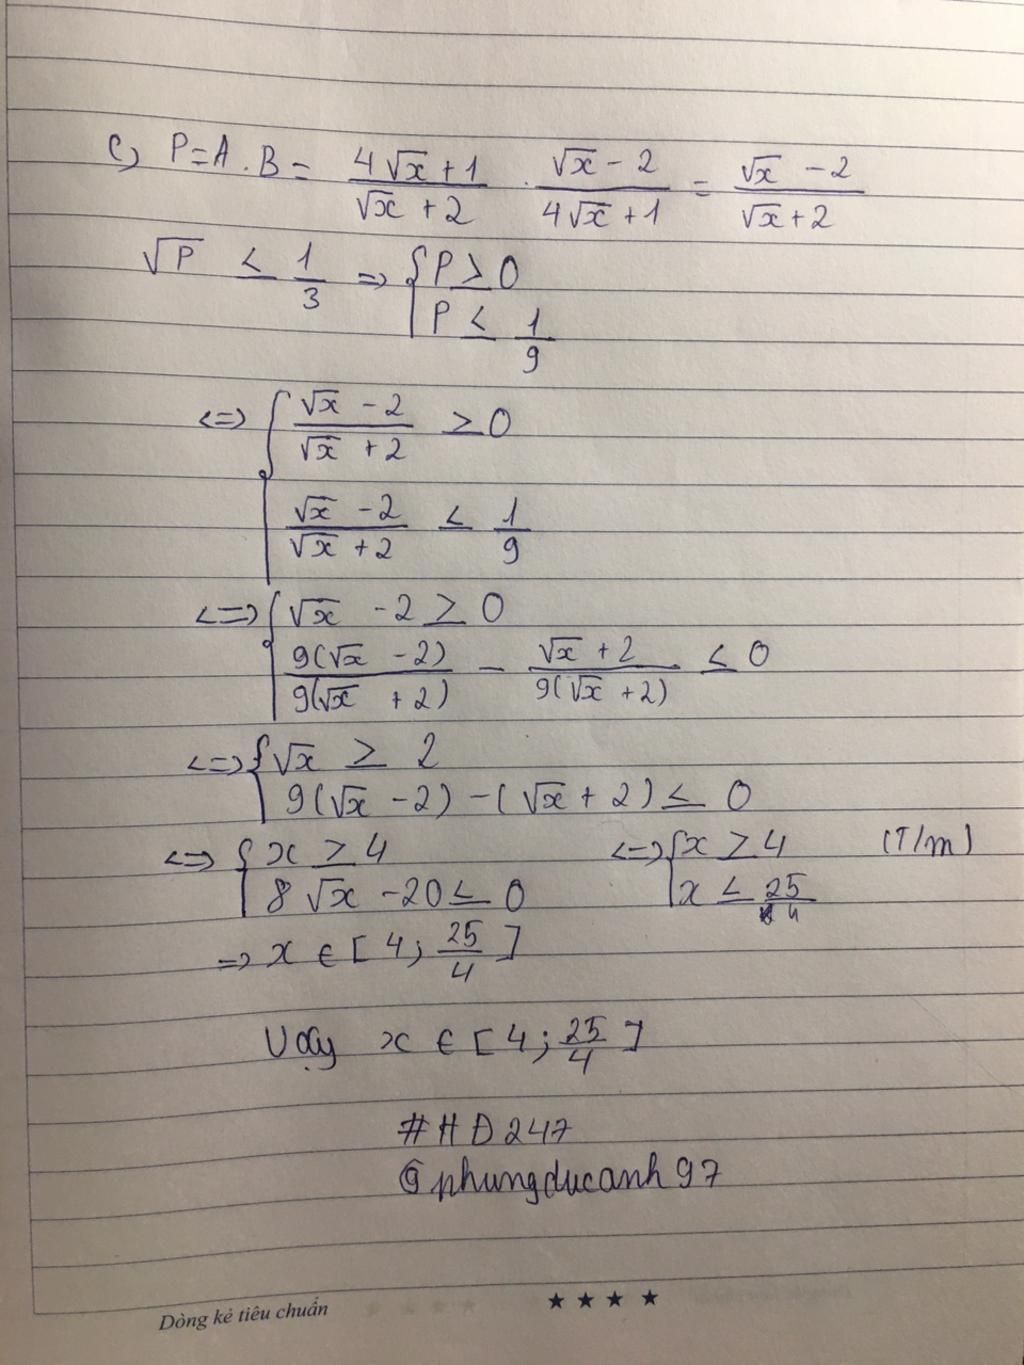 c) P=A.B= (4√x+1)/(√x+2) . (√x-2)/(4√x+1) = (√x-2)/(√x+2)
√P ≤ 1/3 => { P ≥ 0
P ≤ 1/9
<=> { (√x-2)/(√x+2) ≥ 0
(√x-2)/(√x+2) ≤ 1/9
<=> { √x -2 ≥ 0
9(√x-2)/9(√x+2) - (√x+2)/9(√x+2) ≤ 0
<=> { √x ≥ 2
9(√x-2)-(√x+2) ≤ 0
<=> { x ≥ 4 <=> { x ≥ 4 (T/m)
8√x-20 ≤ 0 x ≤ 25/4
=> x ∈ [4; 25/4]
Vậy x ∈ [4; 25/4]
#HD247
@phungducanh97
Dòng kẻ tiêu chuẩn ★ ★ ★ ★